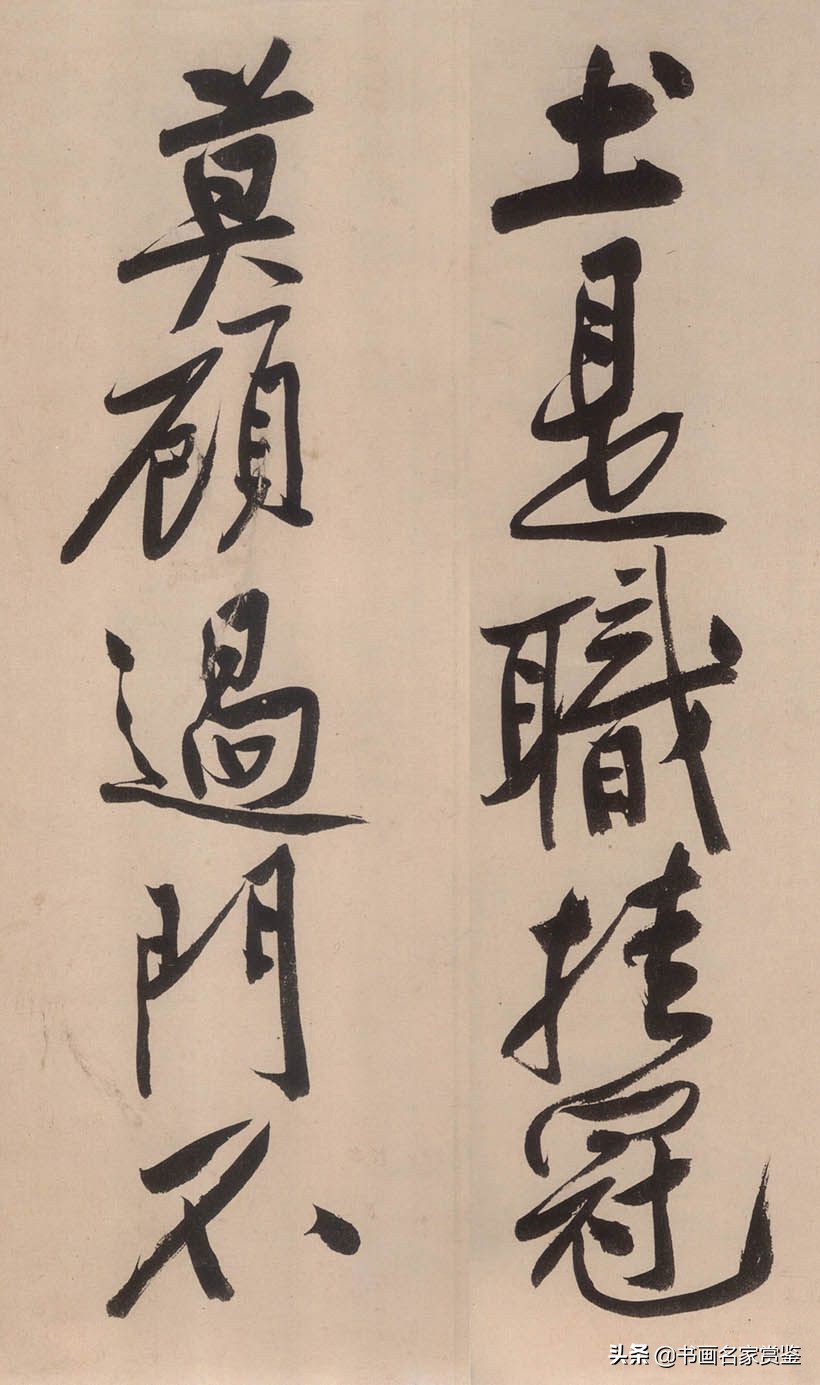 土是職挂冠
莫顧過門不
头条 @书画名家赏鉴